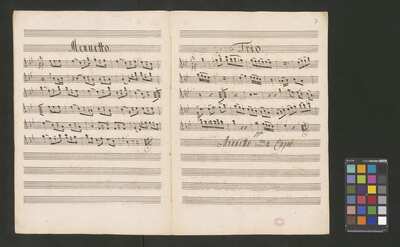 Menuetto
Trio
Da Capo